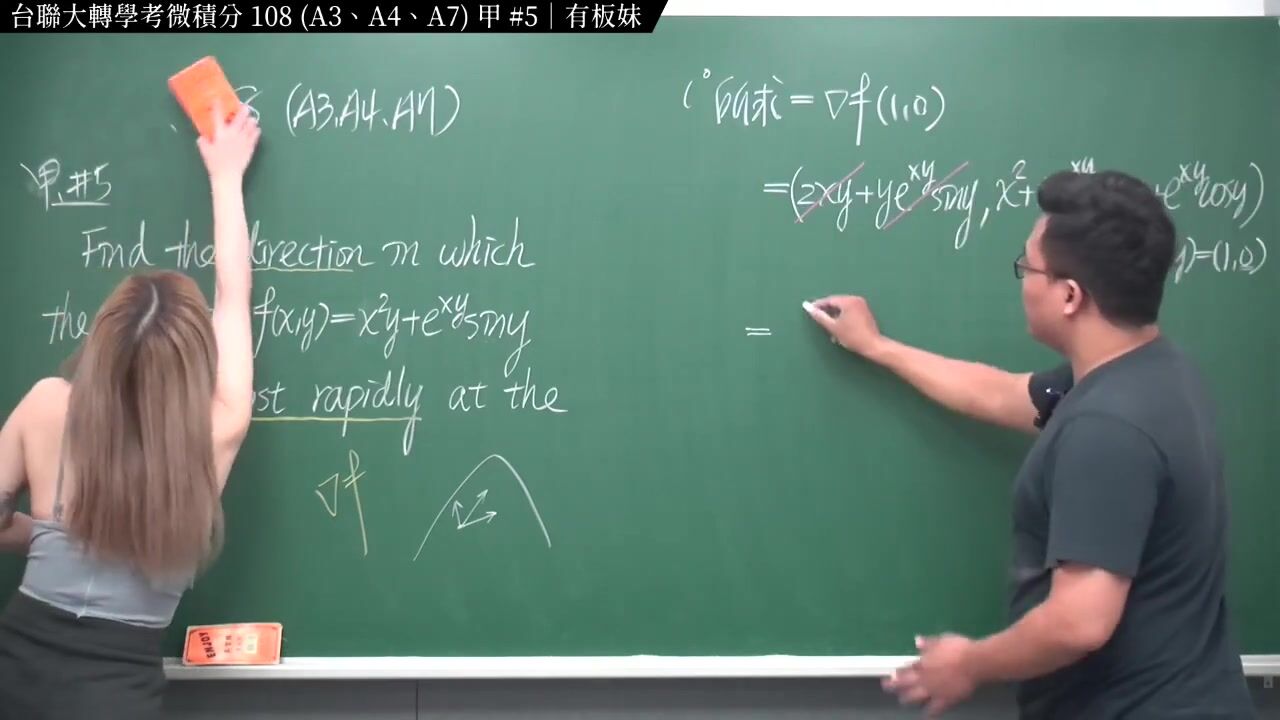 台聯大轉學考微積分 108 (A3、A4、A7) 甲 #5｜有板妹
(A3、A4、A7)
甲、#5
Find the direction in which
the f(x,y)=x²y+e^{xy}siny
rapidly at the
∇f
1° 所求=∇f(1,0)
=(2xy+ye^{xy}siny, x²+ +e^{xy}cosy)
=(1,0)
=
ENJOY